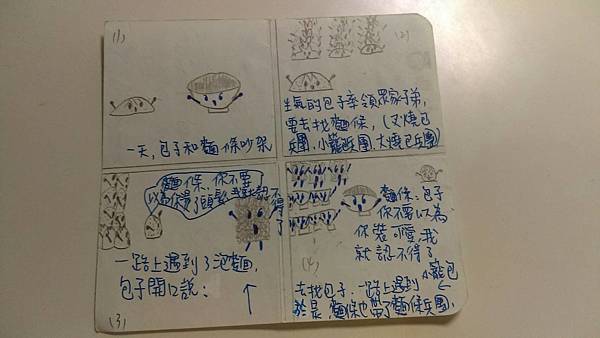 (1)
一天,包子和麵條吵架
(2)
生氣的包子率領眾家子弟,
要去找麵條,(叉燒包
兵團,小籠包兵團,大燒包兵團)
(3)
一路上遇到了泡麵,
包子開口說:
麵條,你不要
以為你燙了頭髮我就認不
得了
(4)
於是,麵條也帶了麵條兵團,
去找包子,一路上遇到
小籠包
麵條:包子
你不要以為
你裝可愛,我
就認不得了